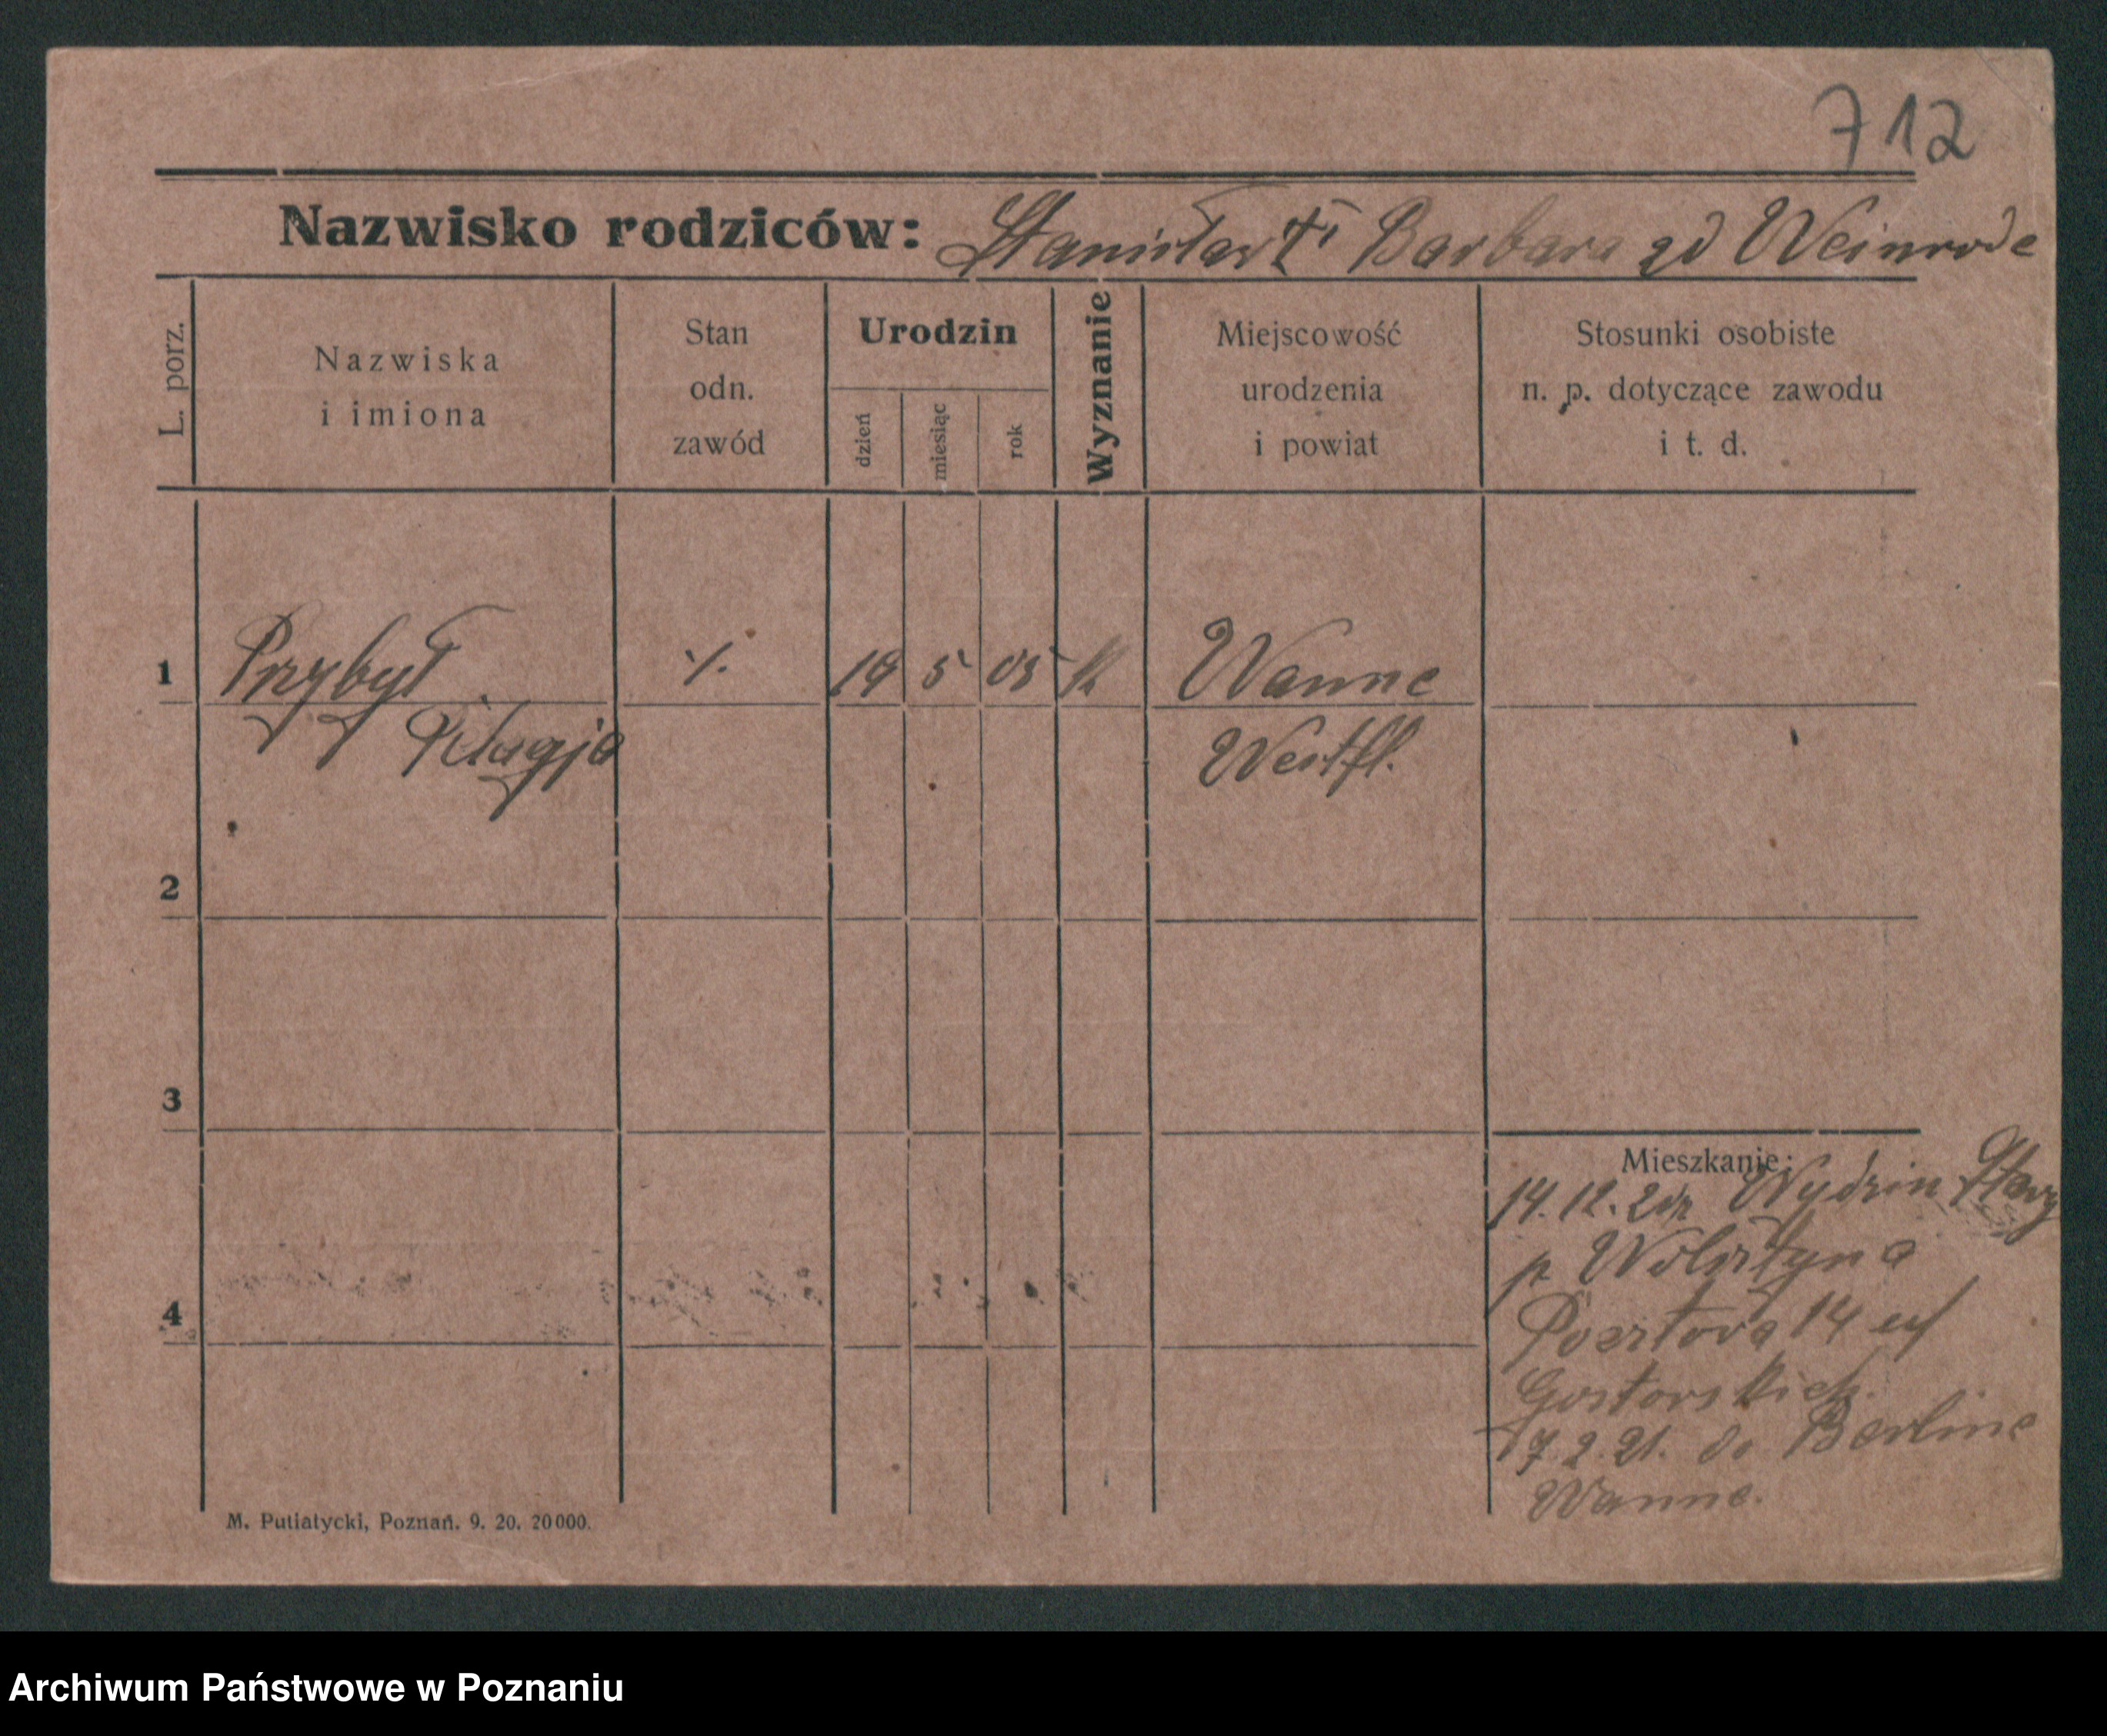 712
Nazwisko rodziców: Stanisław † i Barbara zd Weinrode
L. porz.
Nazwiska
i imiona
Stan
odn.
zawód
Urodzin
dzień
miesiąc
rok
Wyznanie
Miejscowość
urodzenia
i powiat
Stosunki osobiste
n. p. dotyczące zawodu
i t. d.
1 Przybył ·/. 19 5 05 k Wanne
Pelagja Westfl.
2
3
4
Mieszkanie:
14. 12. Stary
p Wolsztyna
Pocztowa 14
7. 2. 21. do Berline
Wanne.
M. Putiatycki, Poznań. 9. 20. 20000.
Archiwum Państwowe w Poznaniu